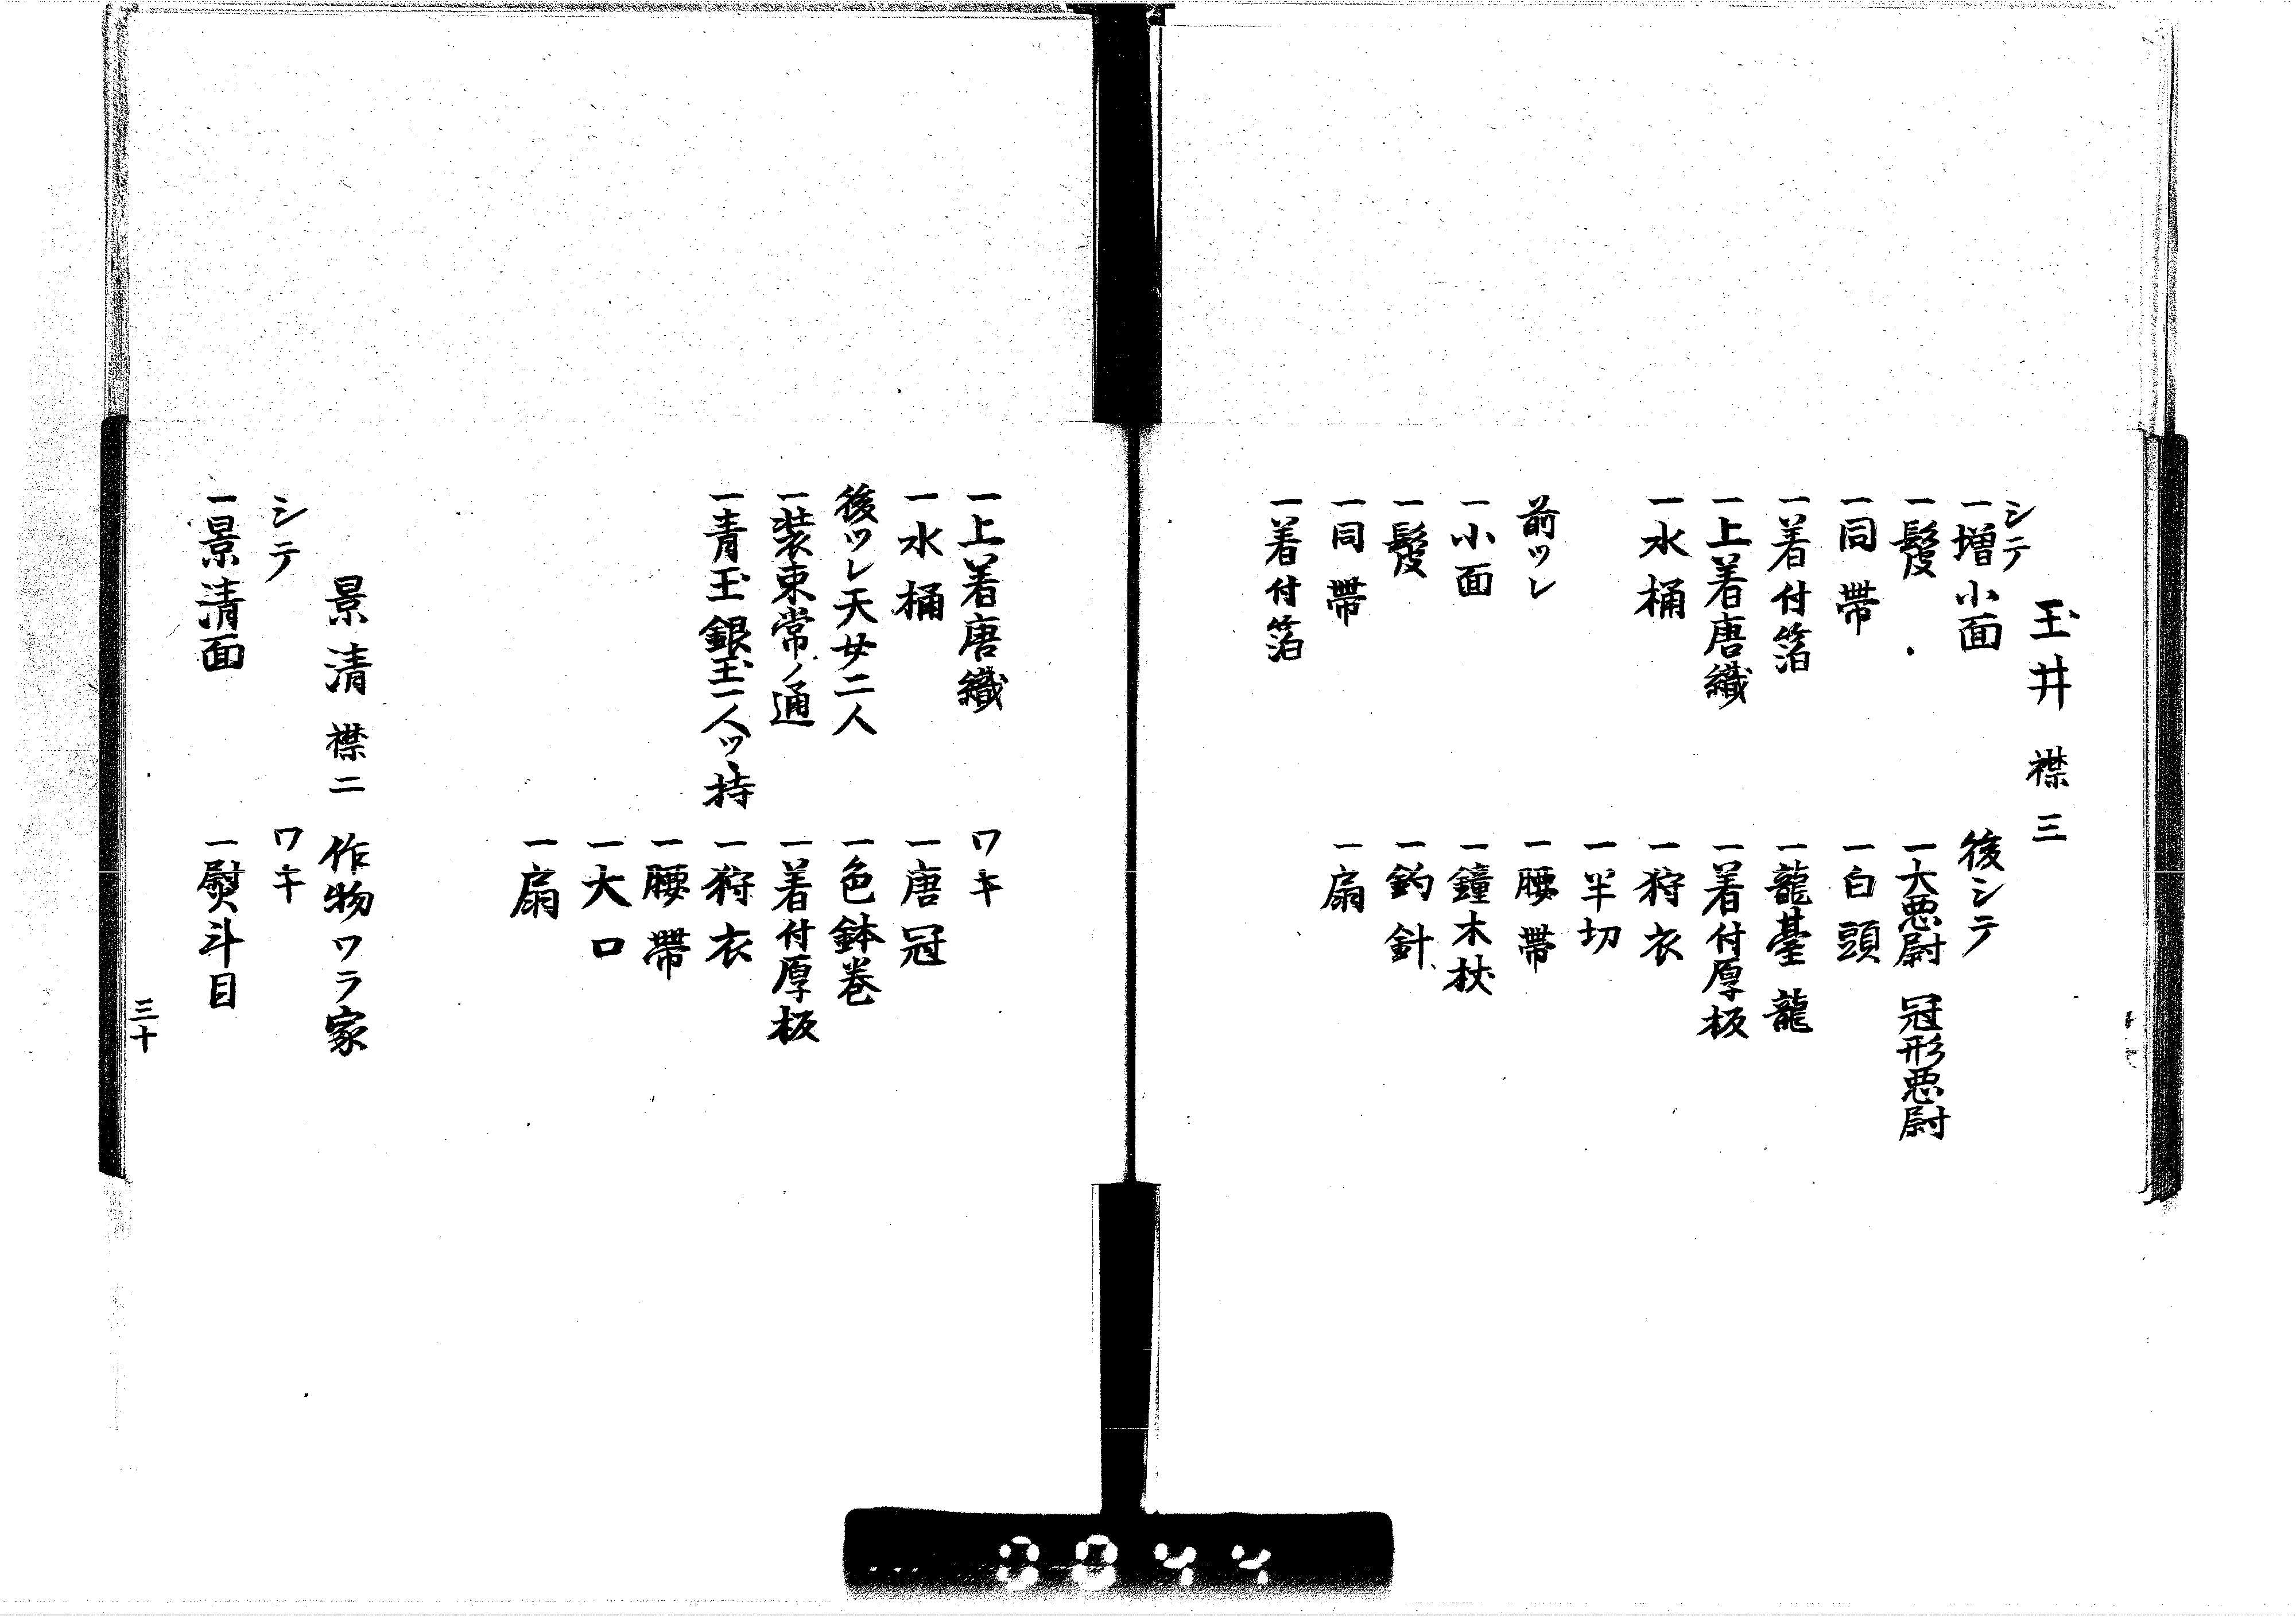 玉井 襟三
シテ
一増 小面
一髲
一同帶
一着付箔
一上着唐織
一水桶
前ツレ
一小面
一髲
一同帶
一着付箔
後シテ
一大悪尉 冠形悪尉
一白頭
一龍臺 龍
一着付厚板
一狩衣
一半切
一腰帶
一鐘木杖
一釣針
一扇
一上着唐織
一水桶
後ツレ天女二人
一装束常ノ通
一青玉銀玉一人ツヽ持
ワキ
一唐冠
一色鉢巻
一着付厚板
一狩衣
一腰帶
一大口
一扇
景清 襟二 作物ワラ家
シテ
一景清面
ワキ
一熨斗目
三十